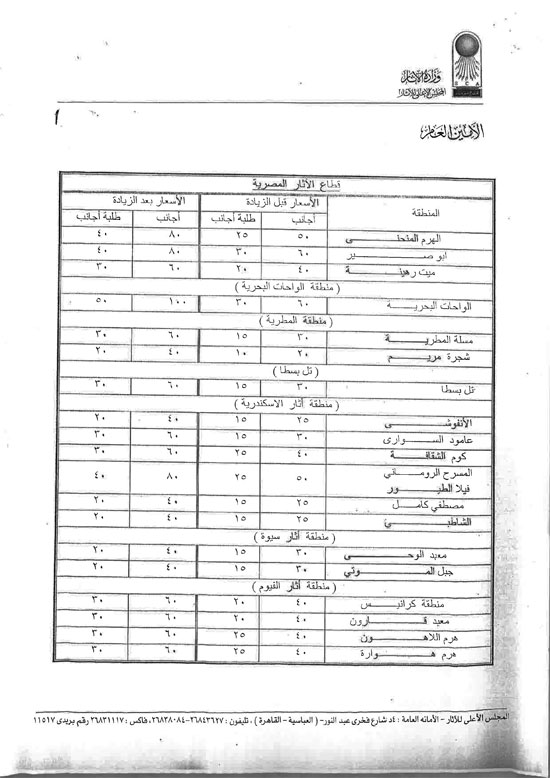 وزارة الآثار
المجلس الأعلى للآثار
S C A
الأمين العام
١
قطاع الآثار المصرية
المنطقة | الأسعار قبل الزيادة | الأسعار بعد الزيادة
أجانب | طلبة أجانب | أجانب | طلبة أجانب
الهرم المنحنى | ٥٠ | ٢٥ | ٨٠ | ٤٠
ابو صير | ٦٠ | ٣٠ | ٨٠ | ٤٠
ميت رهينة | ٤٠ | ٢٠ | ٦٠ | ٣٠
(منطقة الواحات البحرية)
الواحات البحرية | ٦٠ | ٣٠ | ١٠٠ | ٥٠
(منطقة المطرية)
مسلة المطرية | ٣٠ | ١٥ | ٦٠ | ٣٠
شجرة مريم | ٢٠ | ١٠ | ٤٠ | ٢٠
(تل بسطا)
تل بسطا | ٣٠ | ١٥ | ٦٠ | ٣٠
(منطقة آثار الاسكندرية)
الأنفوشى | ٢٥ | ١٥ | ٤٠ | ٢٠
عامود السوارى | ٣٠ | ١٥ | ٦٠ | ٣٠
كوم الشقافة | ٤٠ | ٢٥ | ٦٠ | ٣٠
المسرح الرومانى
فيلا الطيور | ٥٠ | ٢٥ | ٨٠ | ٤٠
مصطفي كامل | ٢٥ | ١٥ | ٤٠ | ٢٠
الشاطبى | ٢٥ | ١٥ | ٤٠ | ٢٠
(منطقة آثار سيوة)
معبد الوحى | ٣٠ | ١٥ | ٤٠ | ٢٠
جبل الموتي | ٣٠ | ١٥ | ٤٠ | ٢٠
(منطقة آثار الفيوم)
منطقة كرانيس | ٤٠ | ٢٠ | ٦٠ | ٣٠
معبد قارون | ٤٠ | ٢٠ | ٦٠ | ٣٠
هرم اللاهون | ٤٠ | ٢٥ | ٦٠ | ٣٠
هرم هوارة | ٤٠ | ٢٥ | ٦٠ | ٣٠
المجلس الأعلى للآثار - الأمانه العامة : ٤د شارع فخرى عبد النور- (العباسية - القاهرة) ، تليفون : ٢٦٨٤٣٦٢٧-٢٦٨٣٨٠٨٤، فاكس : ٢٦٨٣١١١٧ رقم بريدى ١١٥١٧